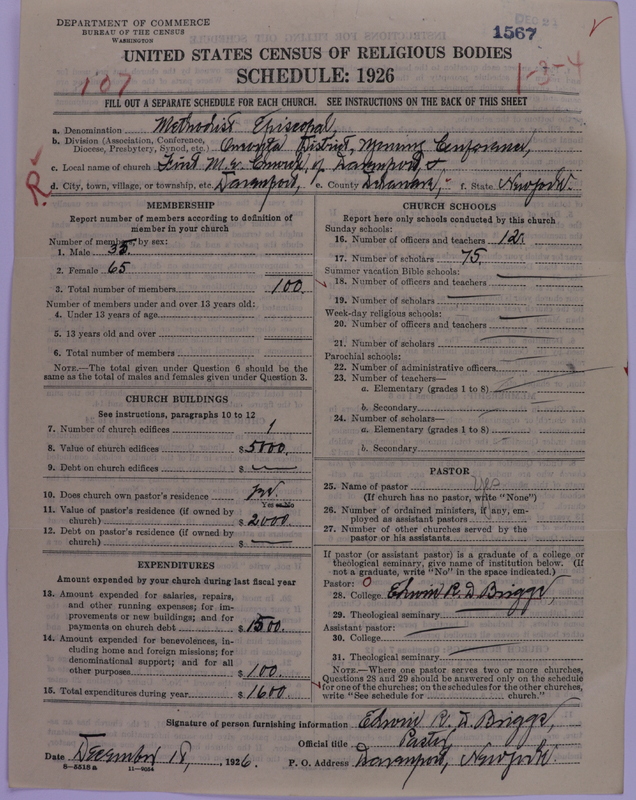 DEPARTMENT OF COMMERCE
BUREAU OF THE CENSUS
WASHINGTON
DEC 21
1567
UNITED STATES CENSUS OF RELIGIOUS BODIES
SCHEDULE: 1926
107
1-3-4
FILL OUT A SEPARATE SCHEDULE FOR EACH CHURCH. SEE INSTRUCTIONS ON THE BACK OF THIS SHEET
a. Denomination Methodist Episcopal,
b. Division (Association, Conference, Diocese, Presbytery, Synod, etc.) District, Wyoming Conference,
c. Local name of church First M.E. Church, of Davenport,
d. City, town, village, or township, etc. Davenport, e. County Delaware, f. State New York.
R
MEMBERSHIP
Report number of members according to definition of
member in your church
Number of members by sex:
1. Male 35
2. Female 65
3. Total number of members 100
Number of members under and over 13 years old:
4. Under 13 years of age
5. 13 years old and over
6. Total number of members
NOTE.—The total given under Question 6 should be
same as the total of males and females given under Question 3.
CHURCH BUILDINGS
See instructions, paragraphs 10 to 12
7. Number of church edifices 1
8. Value of church edifices $ 5000.
9. Debt on church edifices $ —
10. Does church own pastor's residence
Yes or No
11. Value of pastor's residence (if owned by
church) $ 2000
12. Debt on pastor's residence (if owned by
church) $ —
EXPENDITURES
Amount expended by your church during last fiscal year
13. Amount expended for salaries, repairs,
and other running expenses; for im-
provements or new buildings; and for
payments on church debt $ 1500.
14. Amount expended for benevolences, in-
cluding home and foreign missions; for
denominational support; and for all
other purposes $ 100.
15. Total expenditures during year $ 1600
CHURCH SCHOOLS
Report here only schools conducted by this church
Sunday schools:
16. Number of officers and teachers 12.
17. Number of scholars 75.
Summer vacation Bible schools:
18. Number of officers and teachers
19. Number of scholars
Week-day religious schools:
20. Number of officers and teachers
21. Number of scholars
Parochial schools:
22. Number of administrative officers
23. Number of teachers—
a. Elementary (grades 1 to 8)
b. Secondary
24. Number of scholars—
a. Elementary (grades 1 to 8)
b. Secondary
PASTOR
25. Name of pastor yes
(If church has no pastor, write "None")
26. Number of ordained ministers, if any, em-
ployed as assistant pastors
27. Number of other churches served by the
pastor or his assistants
If pastor (or assistant pastor) is a graduate of a college or
theological seminary, give name of institution below. (If
not a graduate, write "No" in the space indicated.)
Pastor: 0
28. College Edwin R. D. Briggs,
29. Theological seminary
Assistant pastor:
30. College
31. Theological seminary
NOTE.—Where one pastor serves two or more churches,
Questions 28 and 29 should be answered only on the schedule
for one of the churches; on the schedules for the other churches,
write "See schedule for church."
Signature of person furnishing information Edwin R. D. Briggs,
Official title Pastor
Date December 18, 1926. P. O. Address Davenport, New York.
8—5518a 11—9054